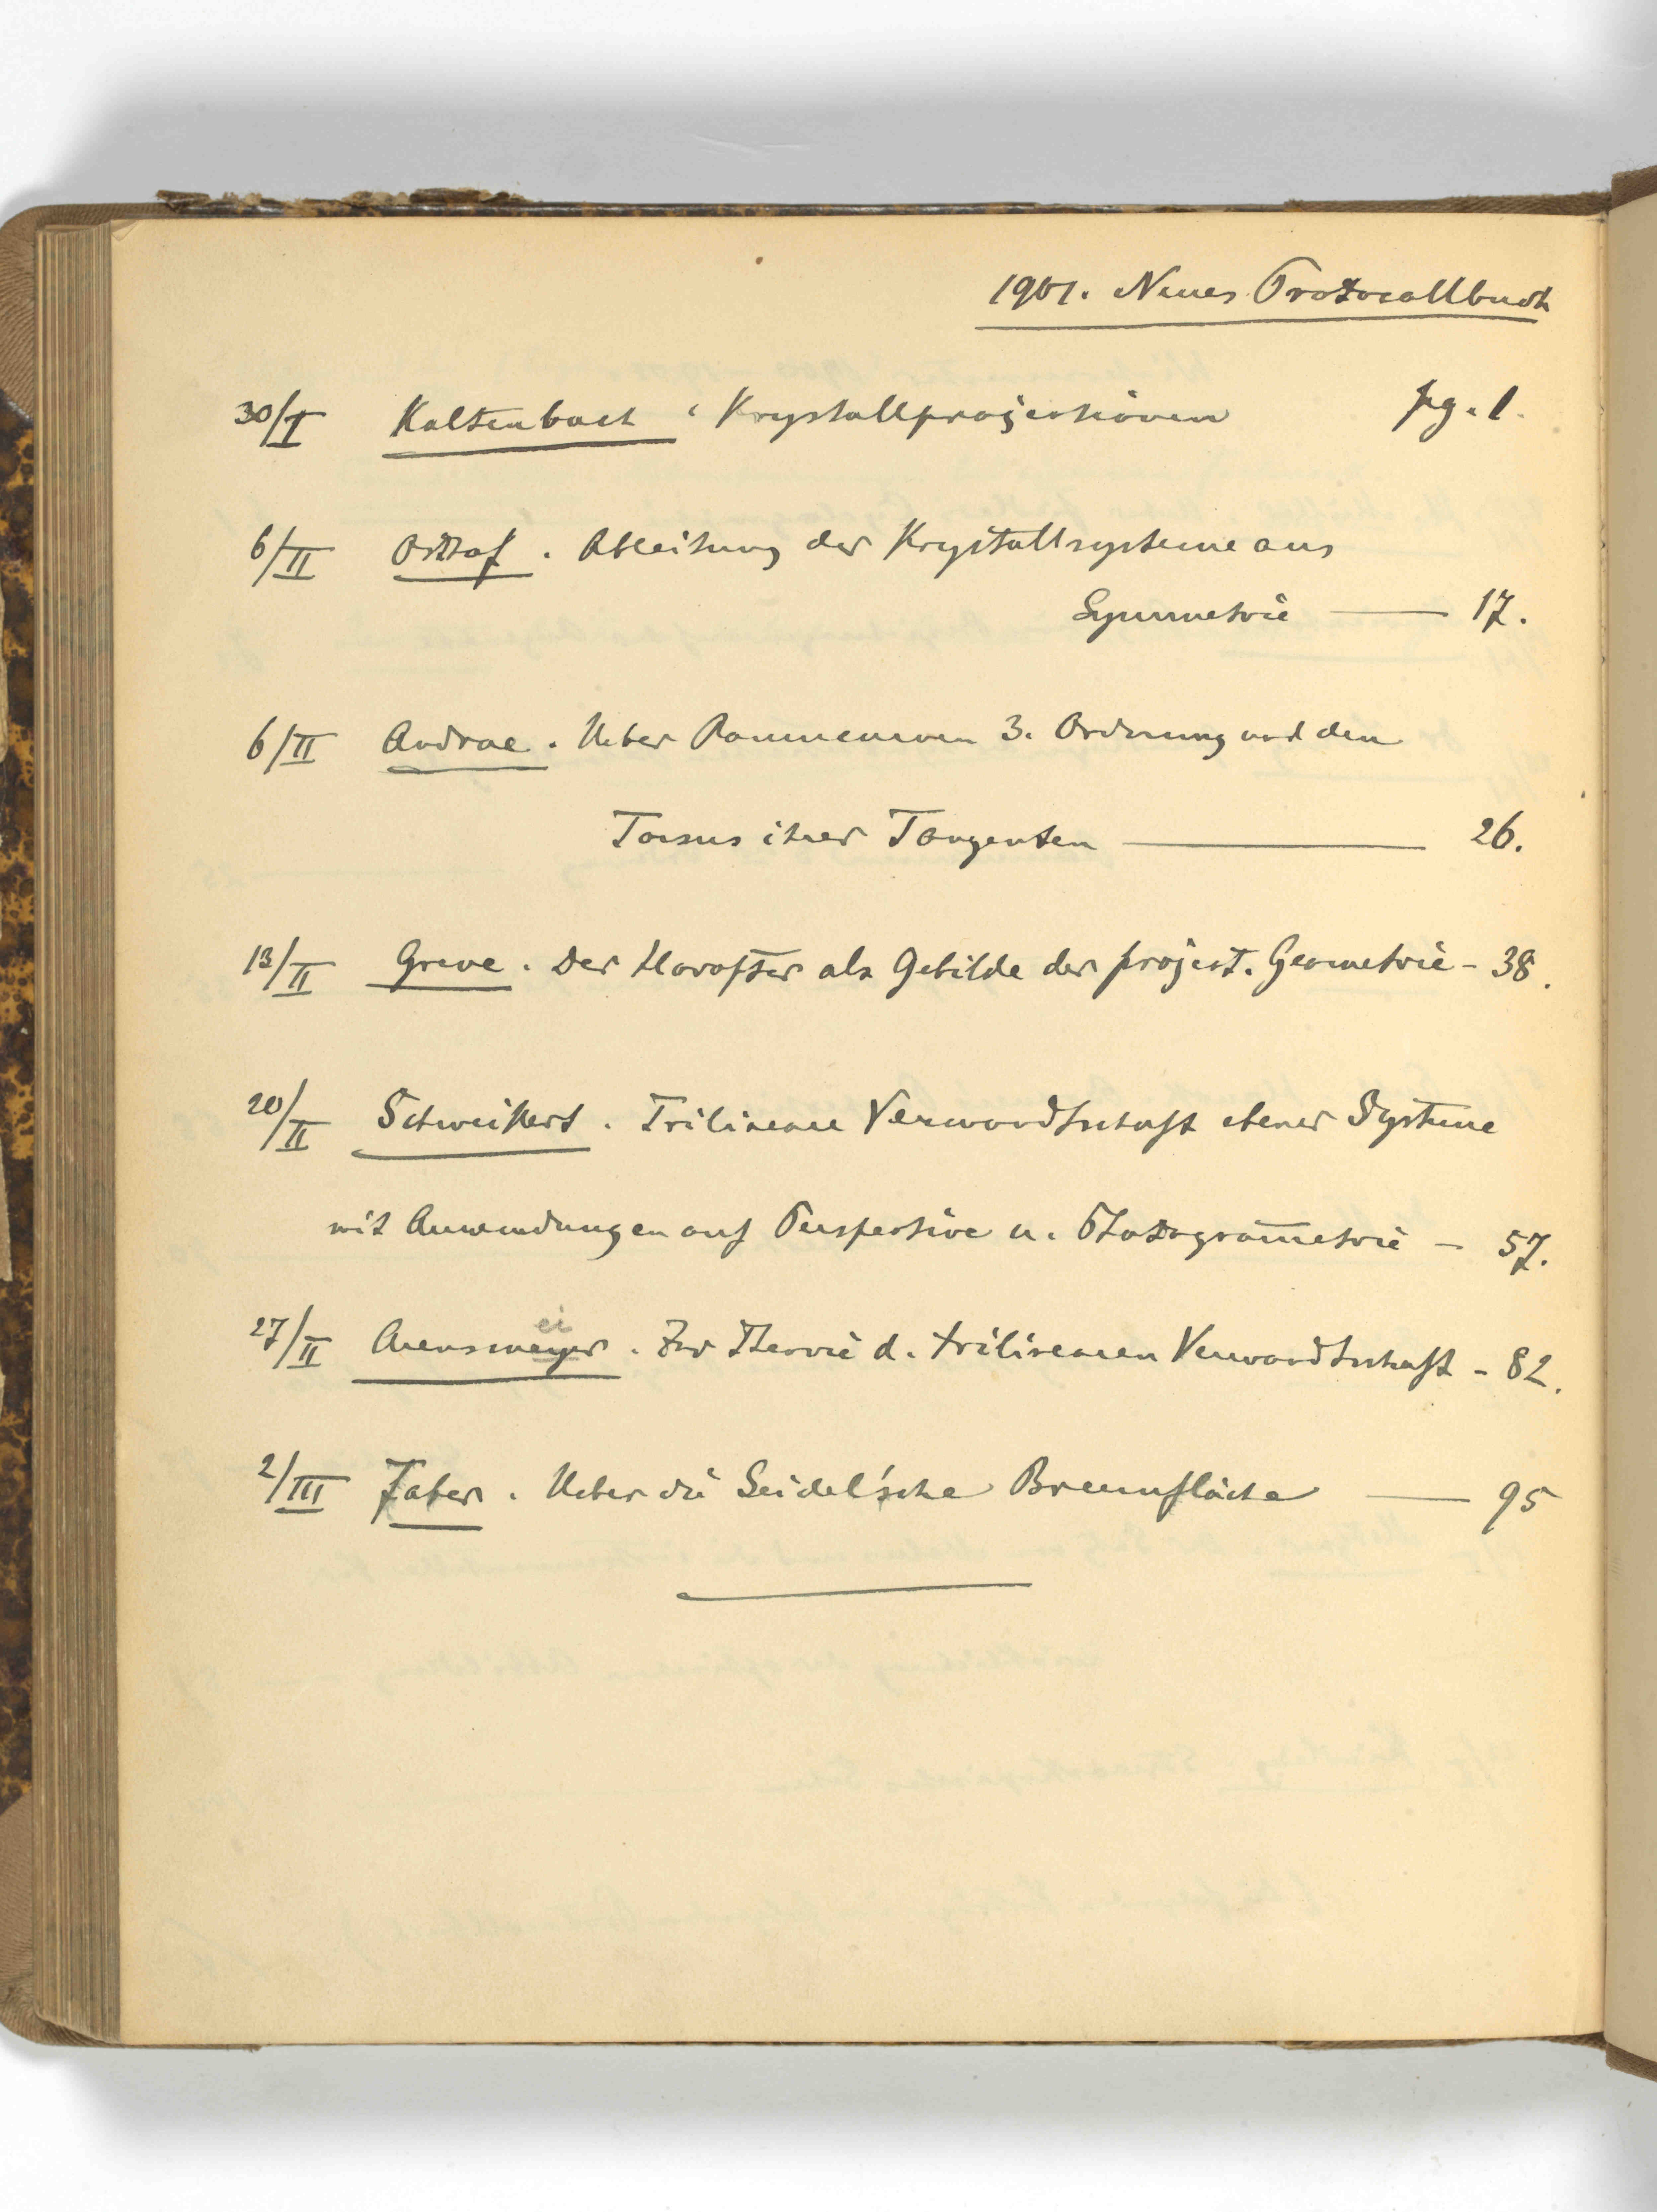 1901. Neues Protocollbuch
30/I Kaltenbach . Krystallprojectionen pg. 1.
6/II Osthof . Ableitung der Krystallsysteme aus
Symmetrie — 17.
6/II Andrae . Ueber Raumcurven 3. Ordnung und den
Torsus ihrer Tangenten — 26.
13/II Greve . Der Horopter als Gebilde der project. Geometrie - 38.
20/II Schweikert . Trilineare Verwandtschaft ebener Systeme
mit Anwendungen auf Perspective u. Photogram̅etrie — 57.
ei
27/II Arensmeyer . Zur Theorie d. trilinearen Verwandtschaft - 82.
2/III Faber . Ueber die Seidel'sche Brennfläche — 95